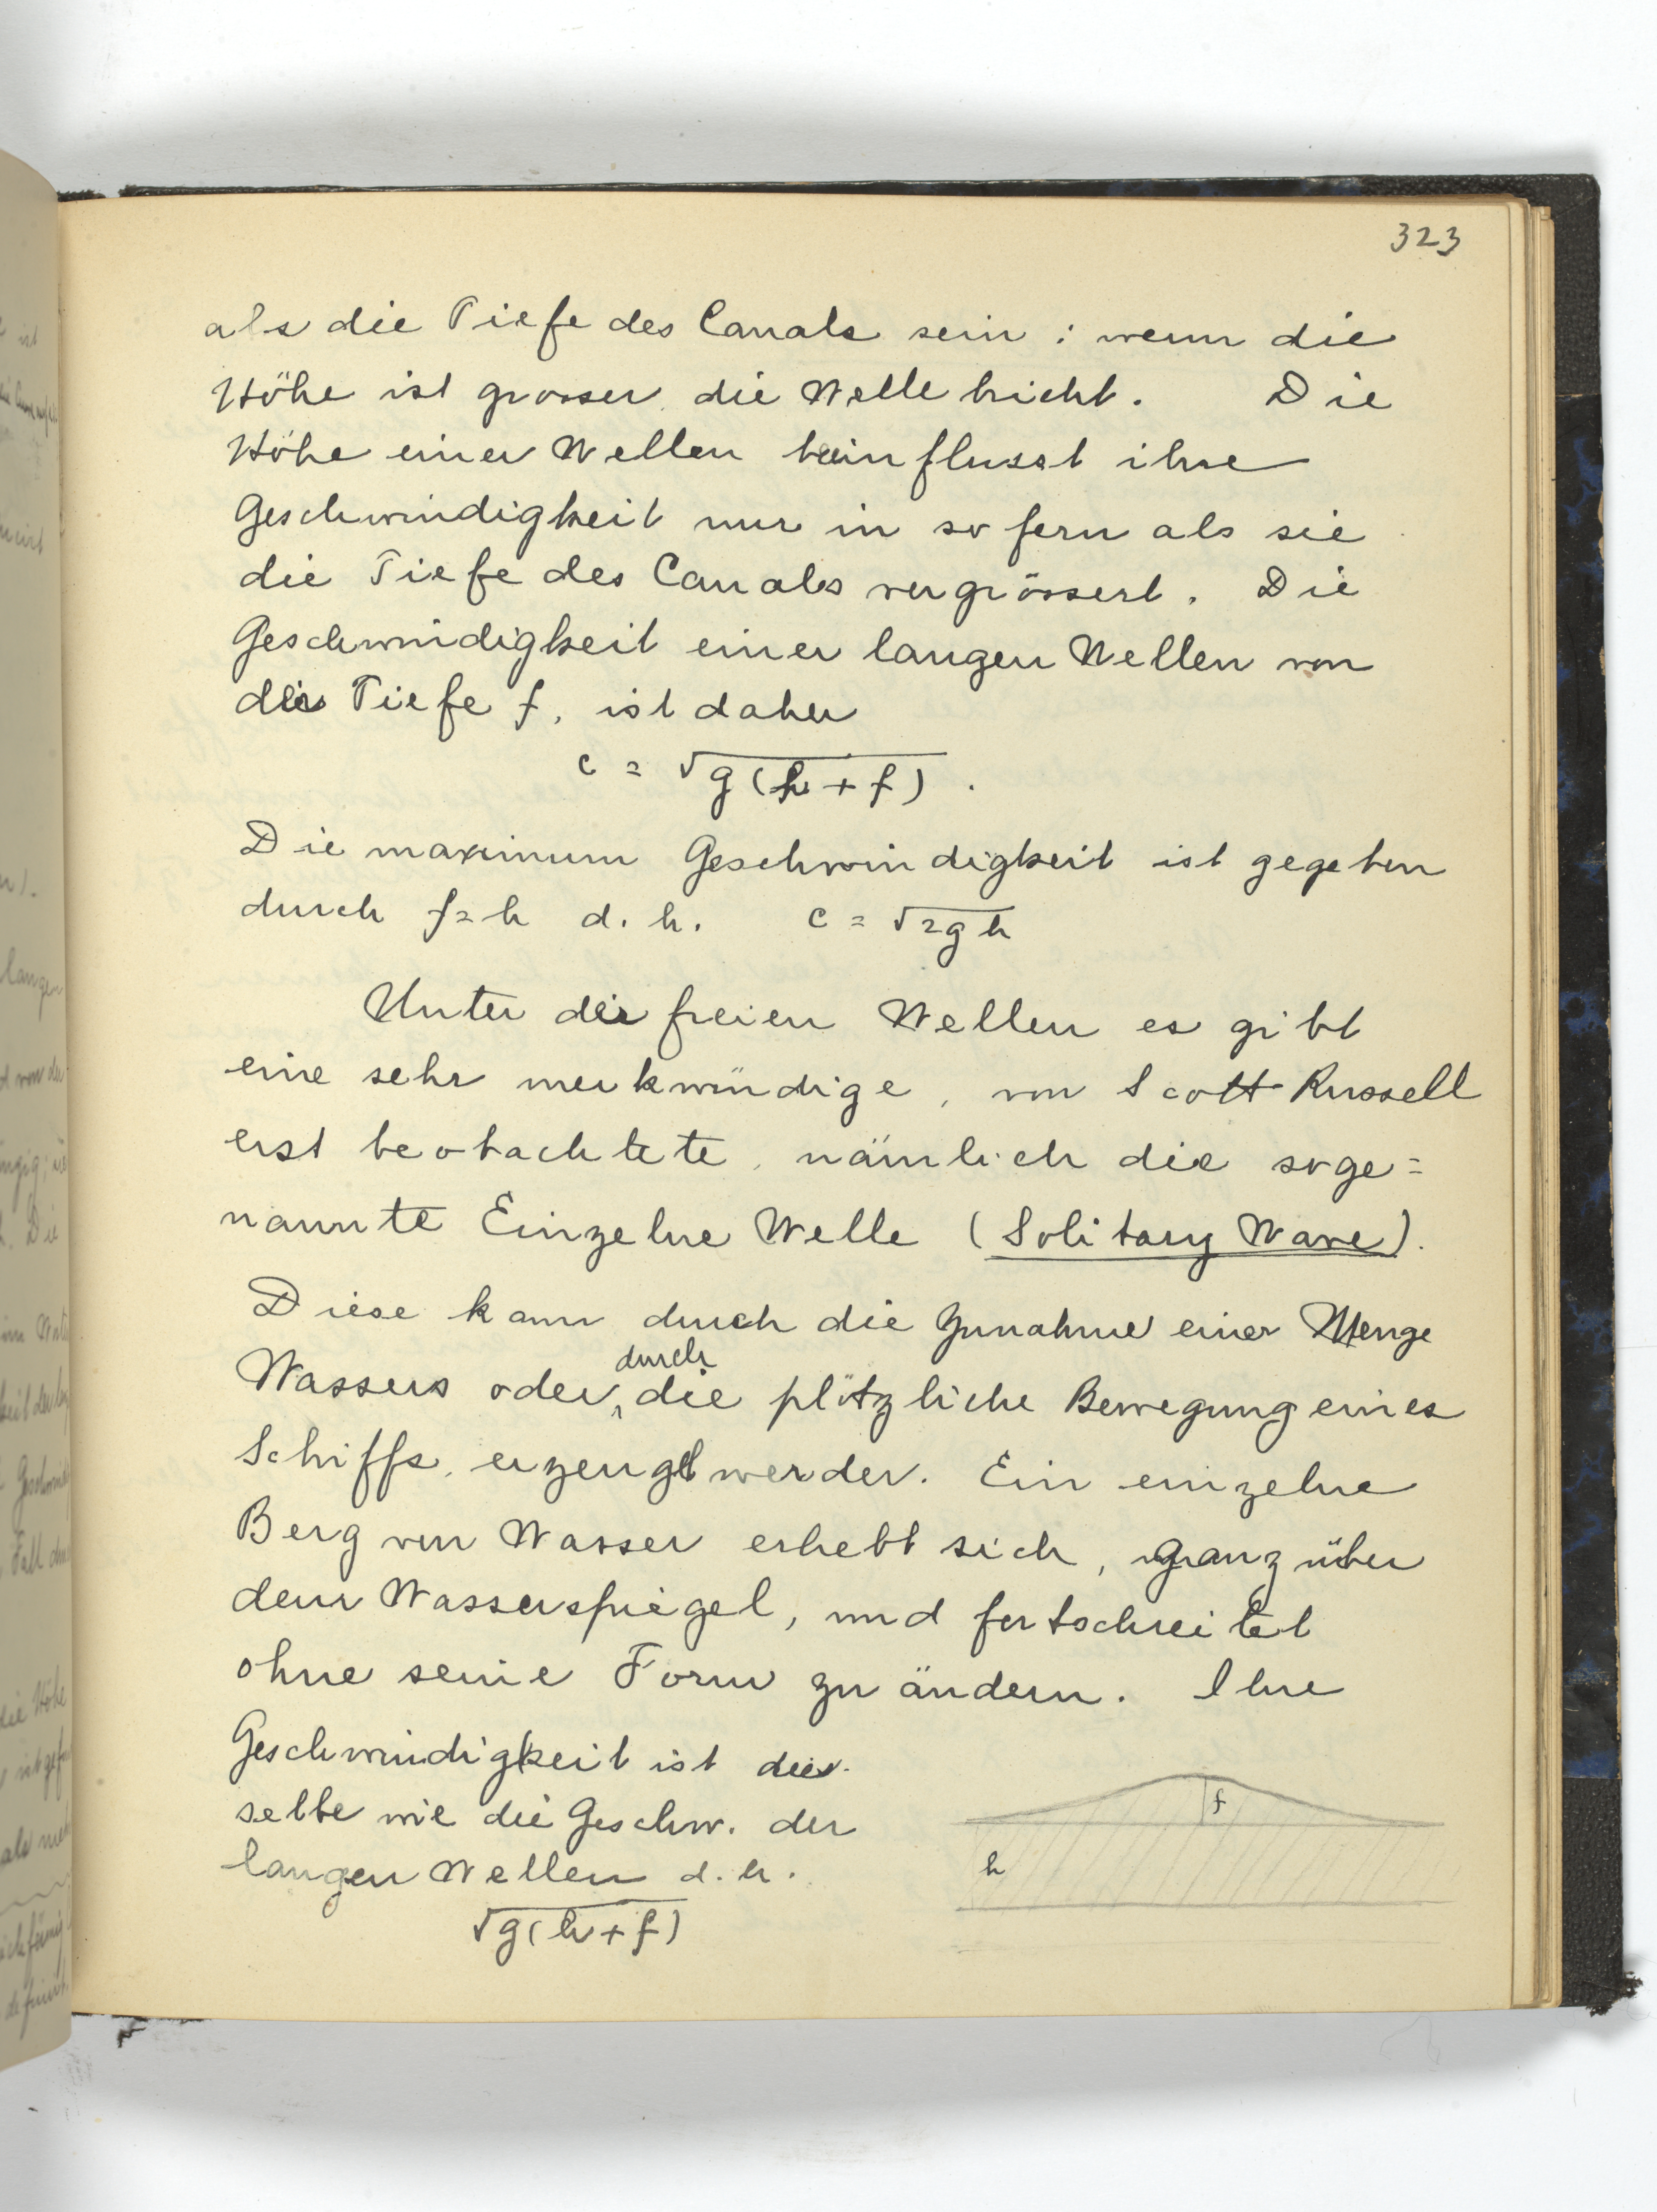 323
als die Tiefe des Canals sein : wenn die
Höhe ist grosser die Welle bricht. Die
Höhe einer Wellen beinflusst ihre
Geschwindigkeit nur in so fern als sie
die Tiefe des Canals vergrössert. Die
Geschwindigkeit einer langen Wellen von
der Tiefe f, ist daher
c = √g(h + f) .
Die maximum Geschwindigkeit ist gegeben
durch f = h d. h. c = √2gh
Unter der freien Wellen es gibt
eine sehr merkwürdige, von Scott Russell
erst beobachtete, nämlich die soge=
nannte Einzelne Welle (Solitary Wave).
Diese kann durch die Zunahme einer Menge
durch
Wassers oder die plötzliche Bewegung eines
Schiffs, erzeugt werden. Ein einzelne
Berg von Wasser erhebt sich, ganz über
dem Wasserspiegel, und fortschreitet
ohne seine Form zu ändern. Ihre
Geschwindigkeit ist die
selbe wie die Geschw. der
langen Wellen d. h.
√g(h + f)
f
h